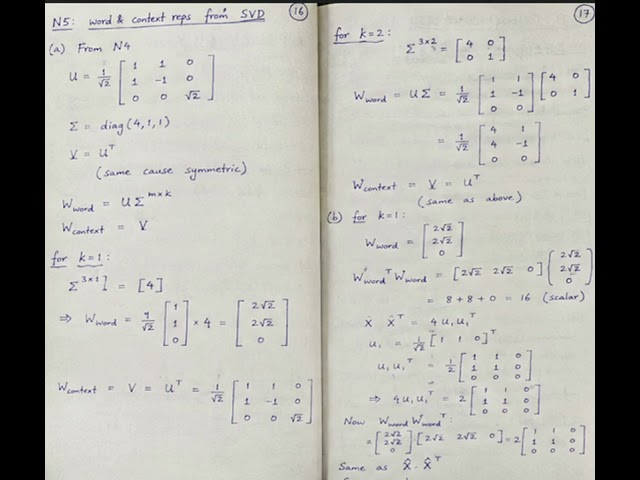 N5: word & context reps from SVD
16
(a) From N4
U = 1/√2 [ 1 1 0
1 -1 0
0 0 √2 ]
Σ = diag(4,1,1)
V = Uᵀ
(same cause symmetric)
W_word = U Σ^{m×k}
W_context = V
for k=1:
Σ^{3×1} = [4]
⇒ W_word = 1/√2 [ 1
1
0 ] × 4 = [ 2√2
2√2
0 ]
W_context = V = Uᵀ = 1/√2 [ 1 1 0
1 -1 0
0 0 √2 ]
17
for k=2:
Σ^{3×2} = [ 4 0
0 1 ]
W_word = U Σ = 1/√2 [ 1 1
1 -1
0 0 ] [ 4 0
0 1 ]
= 1/√2 [ 4 1
4 -1
0 0 ]
W_context = V = Uᵀ
(same as above)
(b) for k=1:
W_word = [ 2√2
2√2
0 ]
W_wordᵀ W_word = [ 2√2 2√2 0 ] [ 2√2
2√2
0 ]
= 8 + 8 + 0 = 16 (scalar)
X̂ X̂ᵀ = 4 u₁ u₁ᵀ
u₁ = 1/√2 [ 1 1 0 ]ᵀ
u₁ u₁ᵀ = 1/2 [ 1 1 0
1 1 0
0 0 0 ]
⇒ 4 u₁ u₁ᵀ = 2 [ 1 1 0
1 1 0
0 0 0 ]
Now W_word W_wordᵀ
= [ 2√2
2√2
0 ] · [ 2√2 2√2 0 ] = 2 [ 1 1 0
1 1 0
0 0 0 ]
Same as X̂ · X̂ᵀ